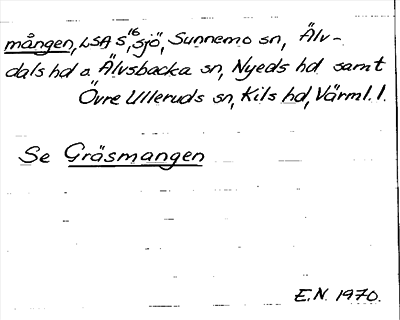 mången, LSA S 16, sjö, Sunnemo sn, Älv-
dals hd o. Älvsbacka sn, Nyeds hd samt
Övre Ulleruds sn, Kils hd, Värml. l.
Se Gräsmangen
E.N. 1970.